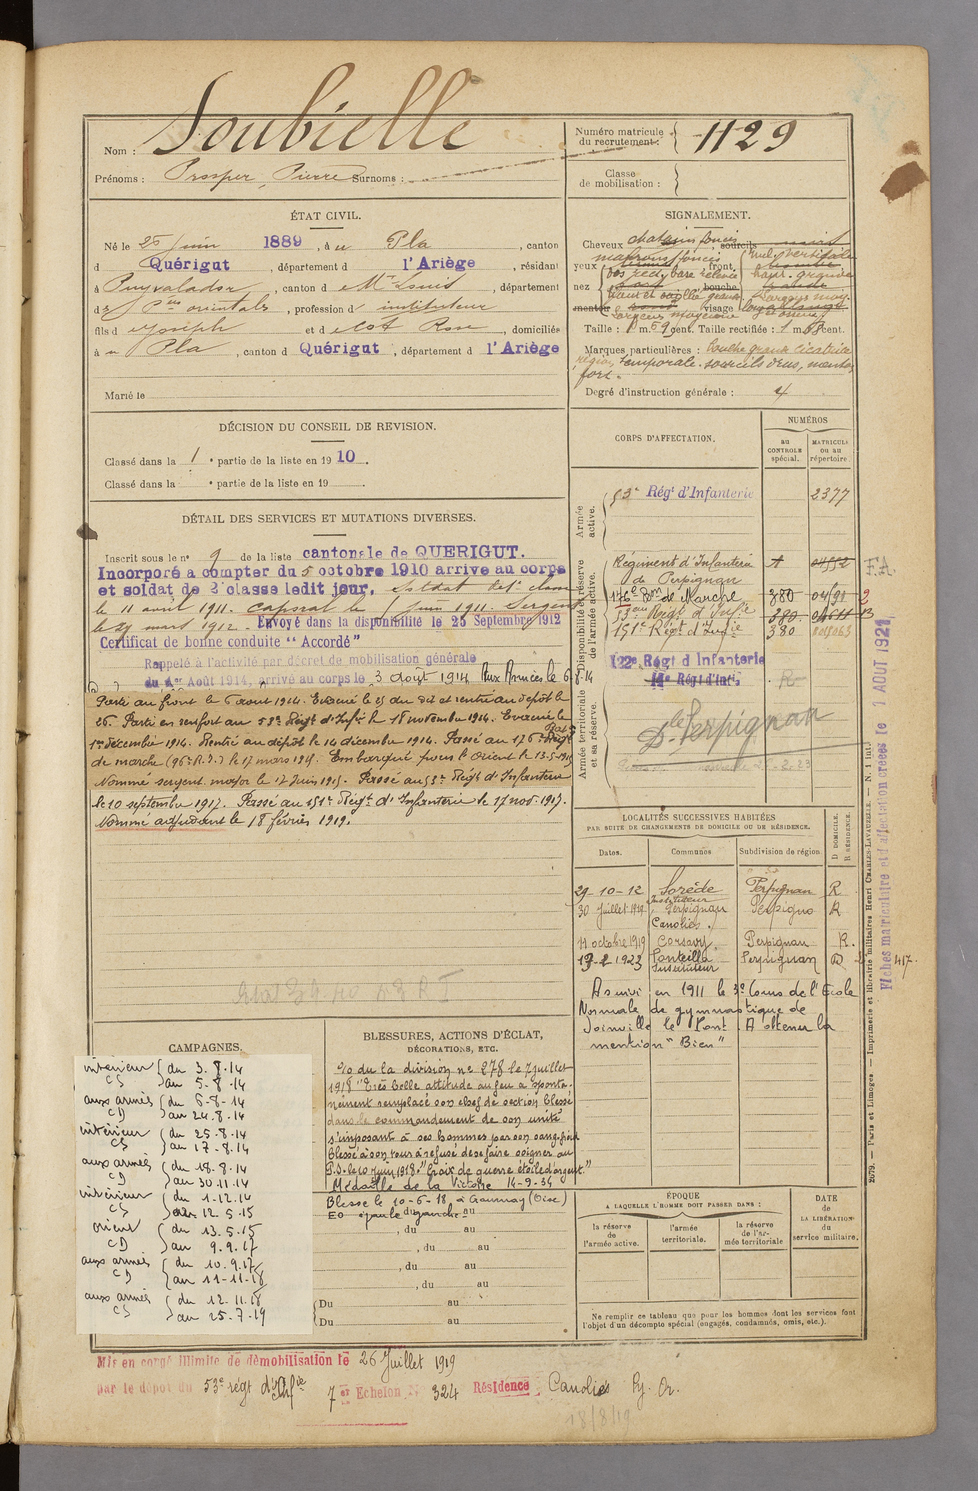 Nom : Soubielle
Prénoms : Prosper, Pierre Surnoms :
Numéro matricule du recrutement : 1129
Classe de mobilisation :
ÉTAT CIVIL.
Né le 25 juin 1889, à Le Pla, canton
d Quérigut, département d l'Ariège, résidant
à Puyvalador, canton d Mt Louis, département
des Pées orientales, profession d instituteur
fils d Joseph et d Rose, domiciliés
à Le Pla, canton d Quérigut, département d l'Ariège
Marié le
SIGNALEMENT.
Cheveux chatains foncés, sourcils
yeux marrons foncés, front
nez, bouche
menton, visage
Taille : 1 m. 69 cent. Taille rectifiée : 1 m. 68 cent.
Marques particulières : Louche grande cicatrice
région temporale. sourcils drus, menton
fort.
Degré d'instruction générale : 4
DÉCISION DU CONSEIL DE REVISION.
Classé dans la 1e partie de la liste en 1910.
Classé dans la e partie de la liste en 19
DÉTAIL DES SERVICES ET MUTATIONS DIVERSES.
Inscrit sous le n° 9 de la liste cantonale de QUERIGUT.
Incorporé a compter du 5 octobre 1910 arrivé au corps
et soldat de 2e classe ledit jour. Soldat de 1e classe
le 11 avril 1911. Caporal le juin 1911. Sergent
le 29 mars 1912. Envoyé dans la disponibilité le 25 Septembre 1912
Certificat de bonne conduite "Accordé"
Rappelé à l'activité par décret de mobilisation générale
du 1er Août 1914, arrivé au corps le 3 août 1914 Aux Armées le 6-8-14
Parti au front le 6 aout 1914. Evacué le 25 du dit et rentré au dépôt le
26. Parti en renfort au 53e Régt d'Infie le 18 novembre 1914. Evacué le
1er décembre 1914. Rentré au dépôt le 14 décembre 1914. Passé au 176e Régt
de marche (96e R.I.) le 17 mars 1915. Embarqué pour l'Orient le 13-5-1915
Nommé sergent major le 17 Juin 1915. Passé au 53e Régt d'Infanterie
le 10 septembre 1917. Passé au 151e Régt d'Infanterie le 17 nov. 1917.
Nommé adjudant le 18 février 1919.
CORPS D'AFFECTATION.
NUMÉROS
AU CONTROLE spécial.
MATRICULE ou au répertoire.
Armée active.
53e Régt d'Infanterie 2377
Disponibilité et réserve de l'armée active.
Régiment d'Infanterie
de Perpignan
176e Rgt de Marche 380
53eme Régt d'Infie 380
151e Régt d'Infie 380
122e Régt d'Infanterie
Armée territoriale et sa réserve.
Dt de Perpignan
F.A.
Fiches matriculaire et d'affectation créées le 1 AOUT 1921
LOCALITÉS SUCCESSIVES HABITÉES
PAR SUITE DE CHANGEMENTS DE DOMICILE OU DE RÉSIDENCE.
Dates. Communes Subdivision de région. D DOMICILE. R RÉSIDENCE.
29-10-12 Sorède Perpignan R
Instituteur
30 Juillet 1919 Perpignan Perpignan R
Canohès.
11 octobre 1919 Corsavy Perpignan R.
19-2-1923 Ponteilla Perpignan R
Instituteur
417.
A suivi en 1911 le 3e Cours de l'Ecole
Normale de gymnastique de
Joinville le Pont. A obtenu la
mention "Bien"
CAMPAGNES.
intérieur CS { du 3.8.14 au 5.8.14
aux armées CD { du 6-8-14 au 24.8.14
intérieur CS { du 25.8.14 au 17.8.14
aux armées CD { du 18.8.14 au 30.11.14
intérieur CS { du 1-12.14 au 12.5.15
orient CD { du 13.5.15 au 9.9.17
aux armées CD { du 10.9.17 au 11-11-18
aux armées CS { du 12.11.18 au 25.7.19
BLESSURES, ACTIONS D'ÉCLAT,
DÉCORATIONS, ETC.
O du la division n° 278 le 7 juillet
1918 "Très belle attitude au feu a sponta-
nément remplacé son chef de section blessé
dans le commandement de son unité
s'imposant à ses hommes par son sang-froid
blessé à son tour a refusé de se faire soigner au
P.S. le 10 juin 1918. "Croix de guerre étoile d'argent"
Médaille de la Victoire 14-9-34
Blessé le 10-6-18 à (Oise)
EO épaule gauche
, du au
, du au
, du au
, du au
Du au
Du au
ÉPOQUE
A LAQUELLE L'HOMME DOIT PASSER DANS :
la réserve de l'armée active.
l'armée territoriale.
la réserve de l'armée territoriale
DATE DE LA LIBÉRATION du service militaire.
Ne remplir ce tableau que pour les hommes dont les services font
l'objet d'un décompte spécial (engagés, condamnés, omis, etc.).
2679. — Paris et Limoges. — Imprimerie et librairie militaires Henri CHARLES-LAVAUZELLE. — N. 1 int.
Mis en congé illimité de démobilisation le 26 Juillet 1919
par le dépôt du 53e régt d'Infie 7e Echelon N° 324 Résidence Canohès Py. Or.
18/8/19